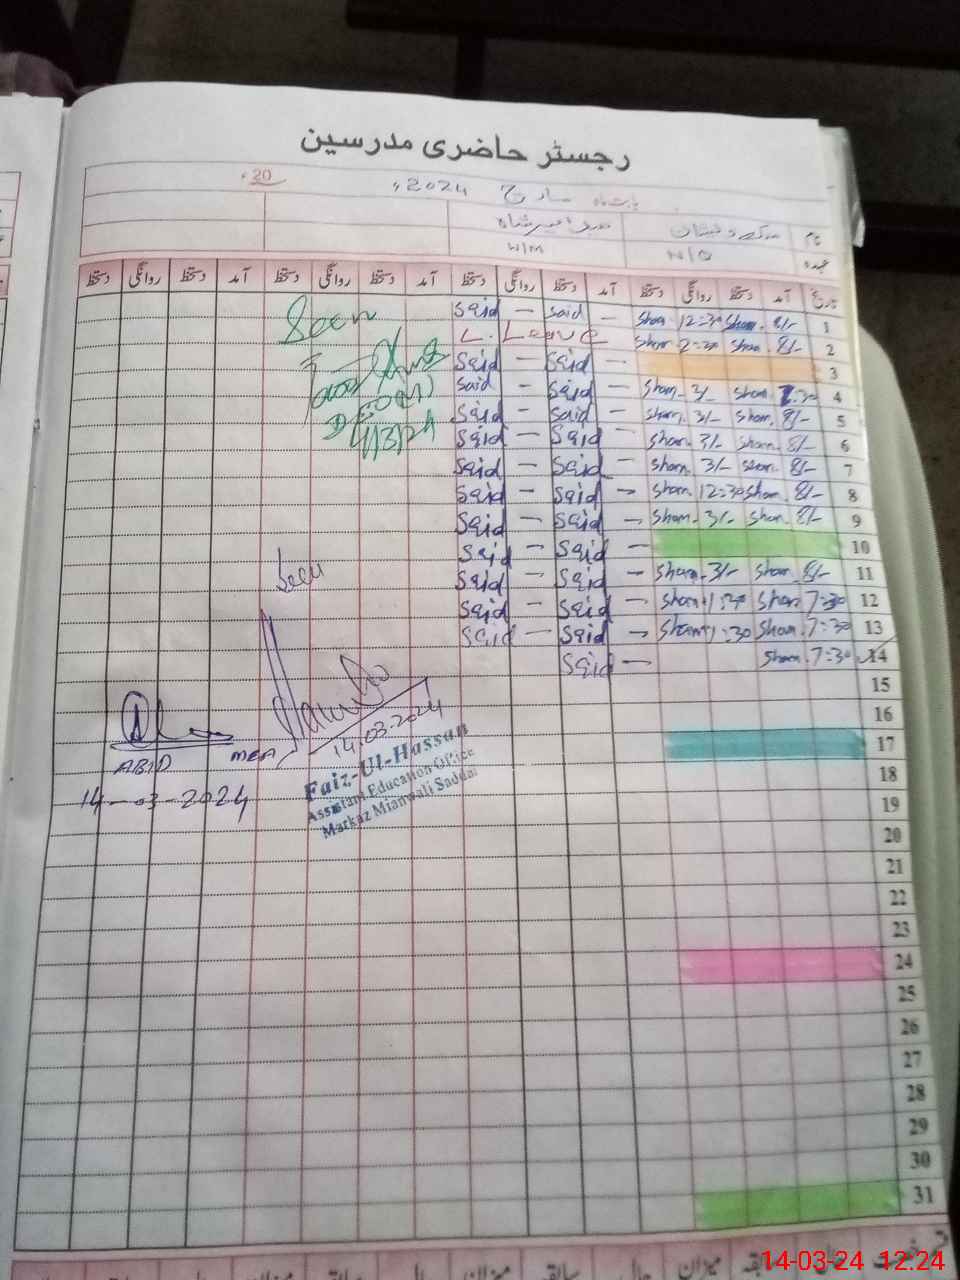 رجسٹر حاضری مدرسین
بابت ماہ مارچ 2024ء 20ء
نام
عہدہ W/Q W/M
تاریخ آمد دستخط روانگی دستخط آمد دستخط روانگی دستخط آمد دستخط روانگی دستخط آمد دستخط روانگی دستخط
1 8/- Sham. 12:30 Sham. - Said - Said
2 8/- Sham. 2:30 Sham. L. Leave
3 - Said - Said
4 7:30 Sham. 3/- Sham. - Said - Said
5 8/- Sham. 3/- Sham. - Said - Said
6 8/- Sham. 3/- Sham. - Said - Said
7 8/- Sham. 3/- Sham. - Said - Said
8 8/- Sham. 12:30 Sham. - Said - Said
9 8/- Sham. 3/- Sham. - Said - Said
10 - Said - Said
11 8/- Sham. 3/- Sham. - Said - Said
12 7:30 Sham. 1:30 Sham. - Said - Said
13 7:30 Sham. 1:30 Sham. - Said - Said
14 7:30 Sham. - Said
15
16
17
18
19
20
21
22
23
24
25
26
27
28
29
30
31
Seen
Seen
14.03.2024
Faiz-Ul-Hassan
Assistant Education Office
Markaz Mianwali Saddar
MEA
ABID
14-03-2024
میزان حال سابقہ میزان حال سابقہ میزان
14-03-24 12.24